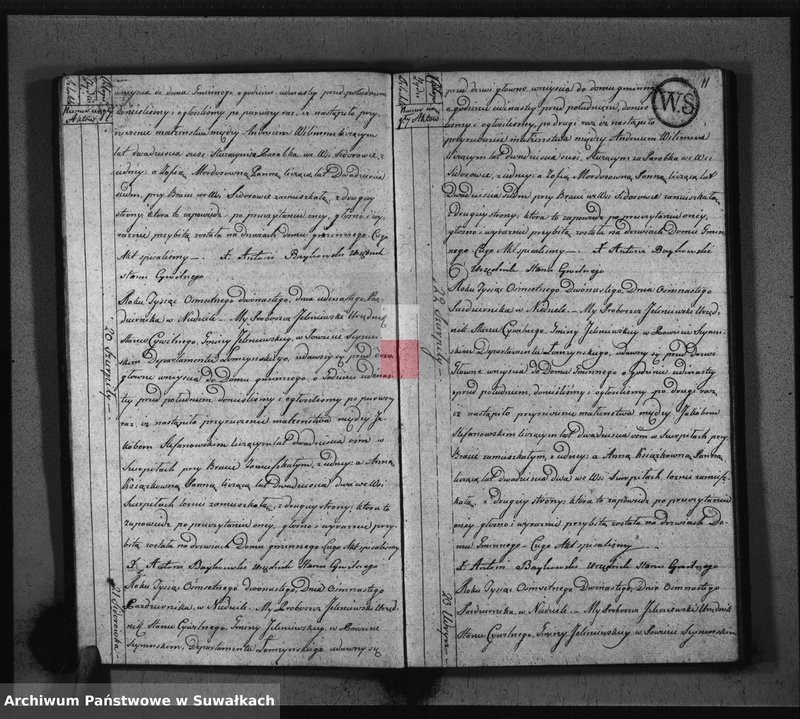 wniyscia do domu Gminnego o godzinie udinasty przed południem
donieśliśmy i ogłosiliśmy po pierwszy raz, iż nastąpiło przy
rzeczenie małżeństwa między Andrzeiem Wilimem liczącym
lat dwadzieścia sześć Parobka we Wsi Sidorowce, z
iedney: a Zofią Panną liczącą lat Dwadzieścia
przy Braci we Wsi Sidorowce zamieszkałą z drugiey
strony, która to zapowiedź po przeczytaniu oney, głośno i wy
raźnie przybitą została na drzwiach domu gminnego Czego
Akt spisaliśmy — X Antoni Baykowski Urzędnik
Stanu Cywilnego
20 Szurpiły
Roku Tysiąc Ośmsetnego dwónastego, dnia udenastego, Paź
dziernika w Niedzielę — My Proboszcz Jeleniewski Urzędnik
Stanu Cywilnego, Gminy Jeleniewskiey, w Powiecie Seyneń
skim Departamentu Łomżyńskiego, udawszy się przed drzwi
główne wniyścia do Domu gminnego o Godzinie udenas
ty przed południem donieśliśmy i ogłosiliśmy po pierwszy
raz, iż nastąpiło przyrzeczenie małżeństwa między Ja
kóbem Stefanowskim liczącym lat dwadzieścia ośm w
Szurpiłach przy Bracie zamieszkałym, z iedney: a Anną
Książkowną Panną liczącą lat dwadzieścia dwa we Wsi
Szurpiłach zamieszkałą, z drugiey strony: która to
zapowiedź po przeczytaniu oney, głośno i wyraźnie przy
bitą została na drzwiach Domu gminnego Czego Akt spisaliśmy
X Antoni Baykowski Urzędnik Stanu Cywilnego
21 Sidorowka
Roku Tysiąc Ośmsetnego dwonastego, Dnia Ośmnastego
Października, w Niedzielę — My Proboszcz Jeleniewski Urzęd
nik Stanu Cywilnego, Gminy Jeleniewskiey, w Powiecie
Seyneńskim, Departamentu Łomżyńskiego udawszy się
11
WS
przed drzwi główne wniyścia do domu gminnego
o godzinie udinasty przed południem, donieś
liśmy i ogłosiliśmy, po drugi raz, iż nastąpiło
przyrzeczenie małżeństwa między Andrzeiem Wilimem
liczącym lat dwadzieścia sześć, Parobka we Wsi
Sidorowce, z iedney: a Zofią Panną liczącą lat
Dwadzieścia siedm przy Braci we Wsi Sidorowce zamieszkałą
z drugiey strony: która to zapowiedź po przeczytaniu oney,
głośno i wyraźnie przybitą została na drzwiach Domu Gmin
nego Czego Akt spisaliśmy — X Antoni Baykowski
Urzędnik Stanu Cywilnego
22 Szurpiły
Roku Tysiąc Ośmsetnego Dwónastego, Dnia Ośmnastego
Października w Niedzielę — My Proboszcz Jeleniewski Urzęd
nik Stanu Cywilnego, Gminy Jeleniewskiey w Powiecie Seyneń
skim Departamentu Łomżyńskiego, udawszy się przed Drzwi
Główne wniyścia do Domu Gminnego o Godzinie udenasty
przed południem, donieśliśmy i ogłosiliśmy po drugi raz,
iż nastąpiło przyrzeczenie małżeństwa między Jakóbem
Stefanowskim liczącym lat dwadzieścia ośm w Szurpiłach przy
Bracie zamieszkałym, z iedney: a Anną Książkowną Panną
liczącą lat dwadzieścia dwa we Wsi Szurpiłach zamiesz
kałą, z drugiey strony: która to zapowiedź po przeczytaniu
oney głośno i wyraźnie przybitą została na drzwiach Do
mu Gminnego — Czego Akt spisaliśmy
X Antoni Baykowski Urzędnik Stanu Cywilnego
23 
Roku Tysiąc Ośmsetnego Dwónastego, Dnia Ośmnastego
Października, w Niedzielę — My Proboszcz Jeleniewski Urzędnik
Stanu Cywilnego, Gminy Jeleniewskiey w Powiecie Seyneńskim
Archiwum Państwowe w Suwałkach